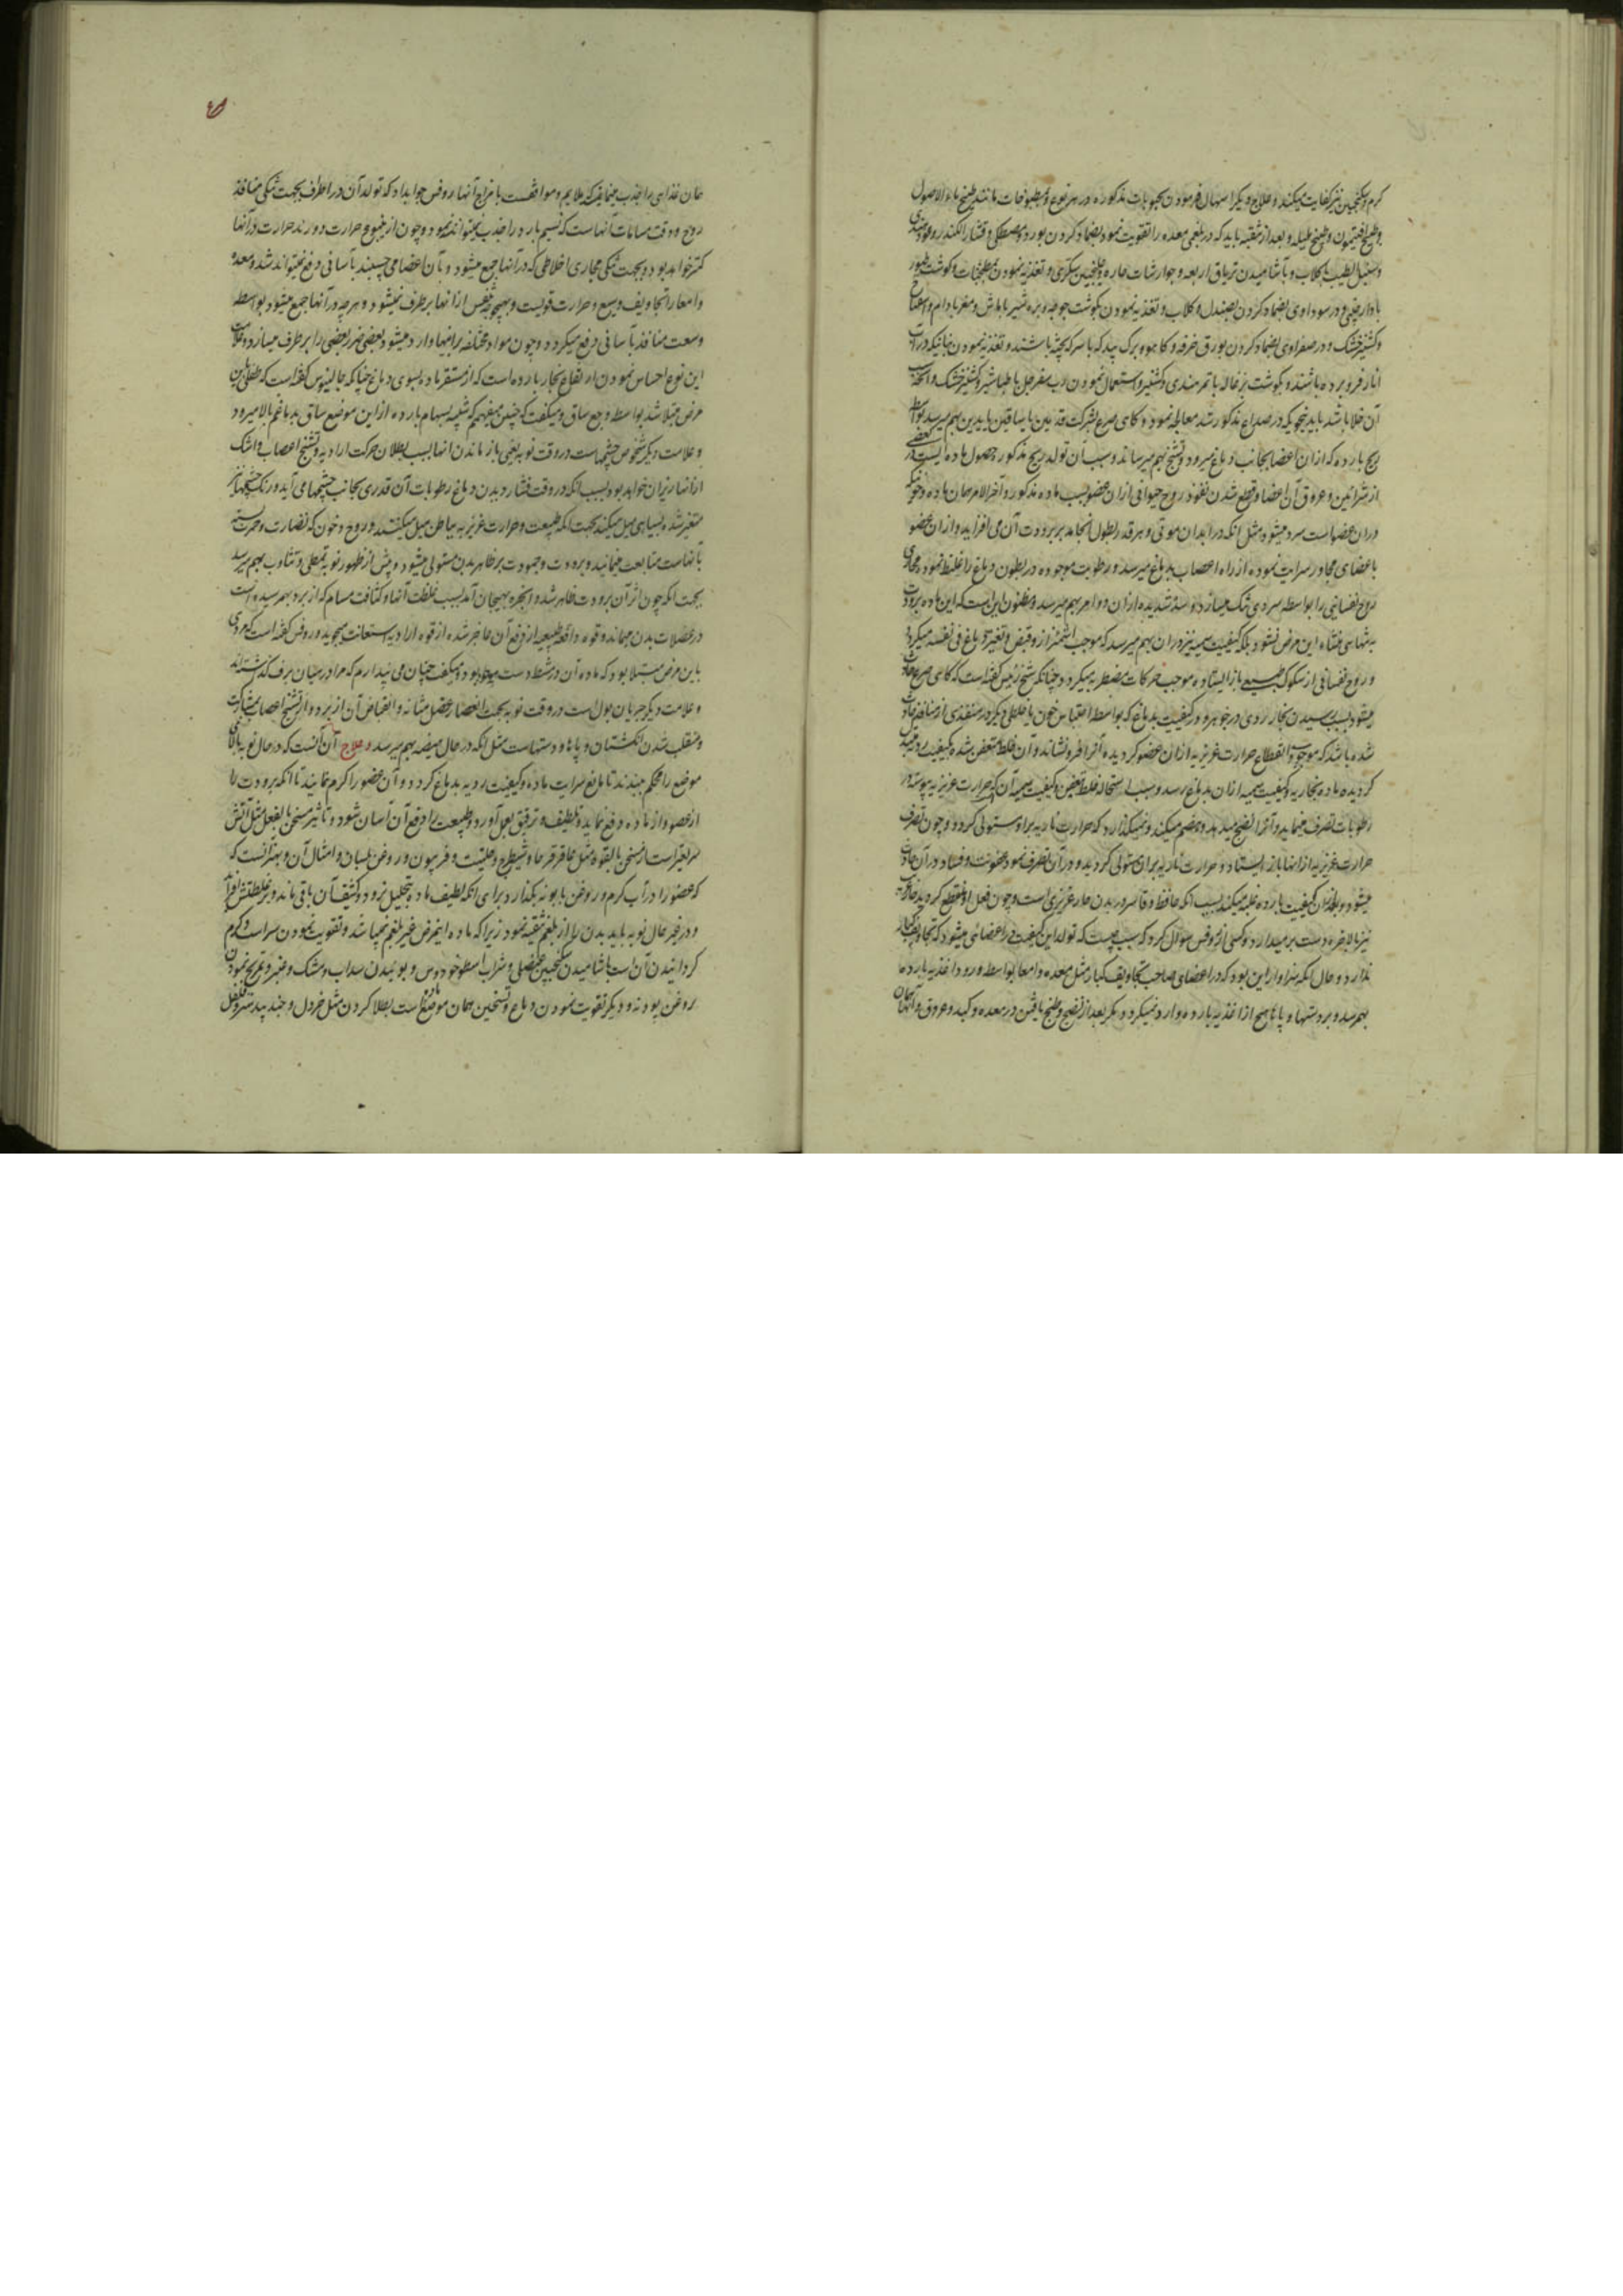 کرم و سکنجبین نیز کفایت میکند و علاج دیگر اسهال فرمودن بحبوبات مذکوره در هر نوع و مطبوخات مانند طبیخ ماء الاصول
و طبیخ افتیمون و طبیخ هلیله و بعد از تنقیه باید که در بلغمی معده را تقویت نمود بضماد کردن بورد و مصطکی و قشار الکندر و عود هندی
و سنبل الطیب باکلاب و بآشامیدن تریاق اربعه و جوارشات حاره و جلنجبین سکری و تغذیه نمودن بمطنجات و کوشت طیور
با دارچینی و در سوداوی بضماد کردن بصندل و کلاب و تغذیه نمودن بکوشت جوجه و بره شیر با ماش و مغز بادام و
و کشنیز خشک و در صفراوی بضماد کردن بورق خرفه و کاهو و برک بید که با سرکه پخته باشند و تغذیه نمودن
انار فرو برده باشند و بکوشت بزغاله با تمر هندی و کشنیز و استعمال نمودن رب سفرجل با طباشیر و کشنیز خشک و
آن خلا باشد باید بنحویکه در صداع مذکور شد معالجه نمود و کاهی صرع بشرکت قدمین یا ساقین یا یدین بهم میرسد بواسطه
ریح بارده که از ان اعضا بجانب دماغ میرود و تشنج بهم میرساند و سبب آن تولد ریح مذکور حصول ماده ایست در بعضی
از شرائین و عروق آن اعضا و قطع شدن نفوذ روح حیوانی از ان عضو بسبب ماده مذکور و آخر الامر همان ماده و خونیکه
در ان عضو است سرد میشود مثل انکه در ابدان موتی و هر قدر بطول انجامد بر برودت آن می افزاید و از ان عضو
باعضای مجاور سرایت نموده از راه اعصاب بدماغ میرسد و رطوبت موجوده در بطون دماغ را غلیظ نموده مجاری
روح نفسانی را بواسطه سردی تنک میسازد و سده شدیده از ان و دوام بهم میرسد و مظنون این است که این ماده ببرودت
به تنهایی منشاء این مرض نشود بلکه کیفیت سمیه نیز در ان بهم میرسد که موجب اشمئزاز و قبض و تغیر دماغ فی نفسه میکردد
و روح نفسانی از سکوک طبیعی باز ایستاده موجب حرکات مضطربه میکردد چنانکه شیخ رئیس کفته است که کاهی صرع حادث
میشود بسبب رسیدن بخار ردی در جوهر و در کیفیت بدماغ که بواسطه احتباس خون یا خلطی دیکر در منفذی از منافذ حادث
شده باشد که موجب انقطاع حرارت غریزیه از ان عضو کردیده آنرا فرو نشاند و آن خلط متعفن شده بکیفیت ردیه سمیه
کردیده ماده بخاریه و کیفیت سمیه از ان بدماغ رسد و سبب استحاله خلط بتعفن و کیفیت سمیه آن که حرارت غریزیه پیوسته در
رطوبات تصرف مینماید و آنرا نضج میدهد و هضم میکند و نمیکذارد که حرارت ناریه بر او مستولی کردد و چون تصرف
حرارت غریزیه از انها باز ایستاد و حرارت ناریه بر ان مستولی کردید و در آن تصرف نمود عفونت و فساد در آن حادث
میشود و بعد از ان کیفیت بارده غلبه میکند بسبب انکه حافظ و قاسر در بدن حار غریزی است و چون فعل او منقطع کردید
نیز بالاخره دست بر میدارد و کسی از روفس سؤال کرد که سبب چیست که تولد این کیفیت در اعضائی میشود که تجاویف کبار
ندارد و حال انکه سزاوار این بود که در اعضای صاحب تجاویف کبار مثل معده و امعا بواسطه ورود اغذیه بارده
بهم رسد و بر دستها و پاها هیچ از اغذیه بارده وارد نمیکردد مکر بعد از نضج و طبخ یافتن در معده و کبد و عروق و آنها همان
همان غذای را جذب مینمایند که ملایم و موافقست با مزاج آنها روفس جوابداد که تولد آن در اطراف بجهت تنکی منافذ
روح و دقت مسامات آنهاست که نسیم بارد را جذب نمیتوانند نمود و چون از ینبوع حرارت دورند حرارت در آنها
کمتر خواهد بود و بجهت تنکی مجاری اخلاطی که در انها جمع میشود و بآن اعضا می چسبند بآسانی دفع نمیتواند شد و معده
و امعا را تجاویف وسیع و حرارت قویست و بهیچوجه نفس از انها بر طرف نمیشود و هرچه در آنها جمع میشود بواسطه
وسعت منافذ بآسانی دفع میکردد و چون مواد مختلفه بر اینها وارد میشود بعضی ضرر بعضی را بر طرف میسازد و علامت
این نوع احساس نمودن ارتفاع بخار بارده است که از مستقر ماده بسوی دماغ چنانکه جالینوس کفته است که طفلی باین
مرض مبتلا شد بواسطه وجع ساق و میکفت که چنین میفهمم که شبیه بسهام بارده از این موضع ساق بدماغم بالا میرود
و علامت دیکر شخوص چشمهاست در وقت نوبه یعنی باز ماندن انها بسبب بطلان حرکت ارادیه و تشنج اعصاب و اشک
از انها ریزان خواهد بود بسبب انکه در وقت فشار دیدن دماغ رطوبات آن قدری بجانب چشمها می آید و رنک چشمها نیز
متغیر شده بسیاهی میل میکند بجهت انکه طبیعت و حرارت غریزیه بباطن میل میکنند و روح و خون که نضارت و حمرت بسته
بآنهاست متابعت مینمایند و برودت و جمودت بر ظاهر بدن مستولی میشود و پیش از ظهور نوبه تمطی و تثاوب بهم میرسد
بجهت انکه چون اثر آن برودت ظاهر شد و ابخره بهیجان آمد بسبب غلظت آنها و کثافت مسام که از برد بهم رسیده است
در عضلات بدن میماند و قوه دافعه طبیعیه از دفع آن عاجز شده از قوه ارادیه استعانت میجوید و روفس کفته است که مردی
باین مرض مبتلا بود که ماده آن در مشط دست موجود بود و میکفت چنان می پندارم که مرا در میان برف کذاشته‌اند
و علامت دیکر جریان بول است در وقت نوبه بجهت انعصار عضل مثانه و انقباض آن از برد و از تشنج اعصاب بمشارکت
و منقلب شدن انکشتان و پاها و دستهاست مثل انکه در حال هیضه بهم میرسد و علاج آن آنست که در حال نوبه بالای
موضع را محکم ببندند تا مانع سرایت ماده و کیفیت ردیه بدماغ کردد و آن عضو را کرم نمایند تا انکه برودت را
از عضو و از ماده دفع نماید و تلطیف و ترقیق بعمل آورد و طبیعت را دفع آن آسان شود و تاثیر مسخن بالفعل مثل آتش
سریعتر است از مسخن بالقوه مثل عاقرقرحا و شیطرج و حلتیت و فرپیون و روغن بلسان و امثال آن و بهتر آنست که
که عضو را در آب کرم و روغن بابونه بکذارد برای انکه لطیف ماده بتحلیل نرود و کثیف آن باقی ماند و بر غلظتش افزاید
و در غیر حال نوبه باید بدن را از بلغم تنقیه نمود زیرا که ماده اینمرض غیر بلغم نمیباشد و تقویت نمودن سر است و کرم
کردانیدن آن است بآشامیدن سکنجبین عنصلی و شراب اسطوخودوس و بوئیدن سداب و مشک و عنبر و تمریخ نمودن
روغن پودنه و دیکر تقویت نمودن دماغ و تسخین همان موضع است بطلا کردن مثل خردل و جندبیدستر و فلفل